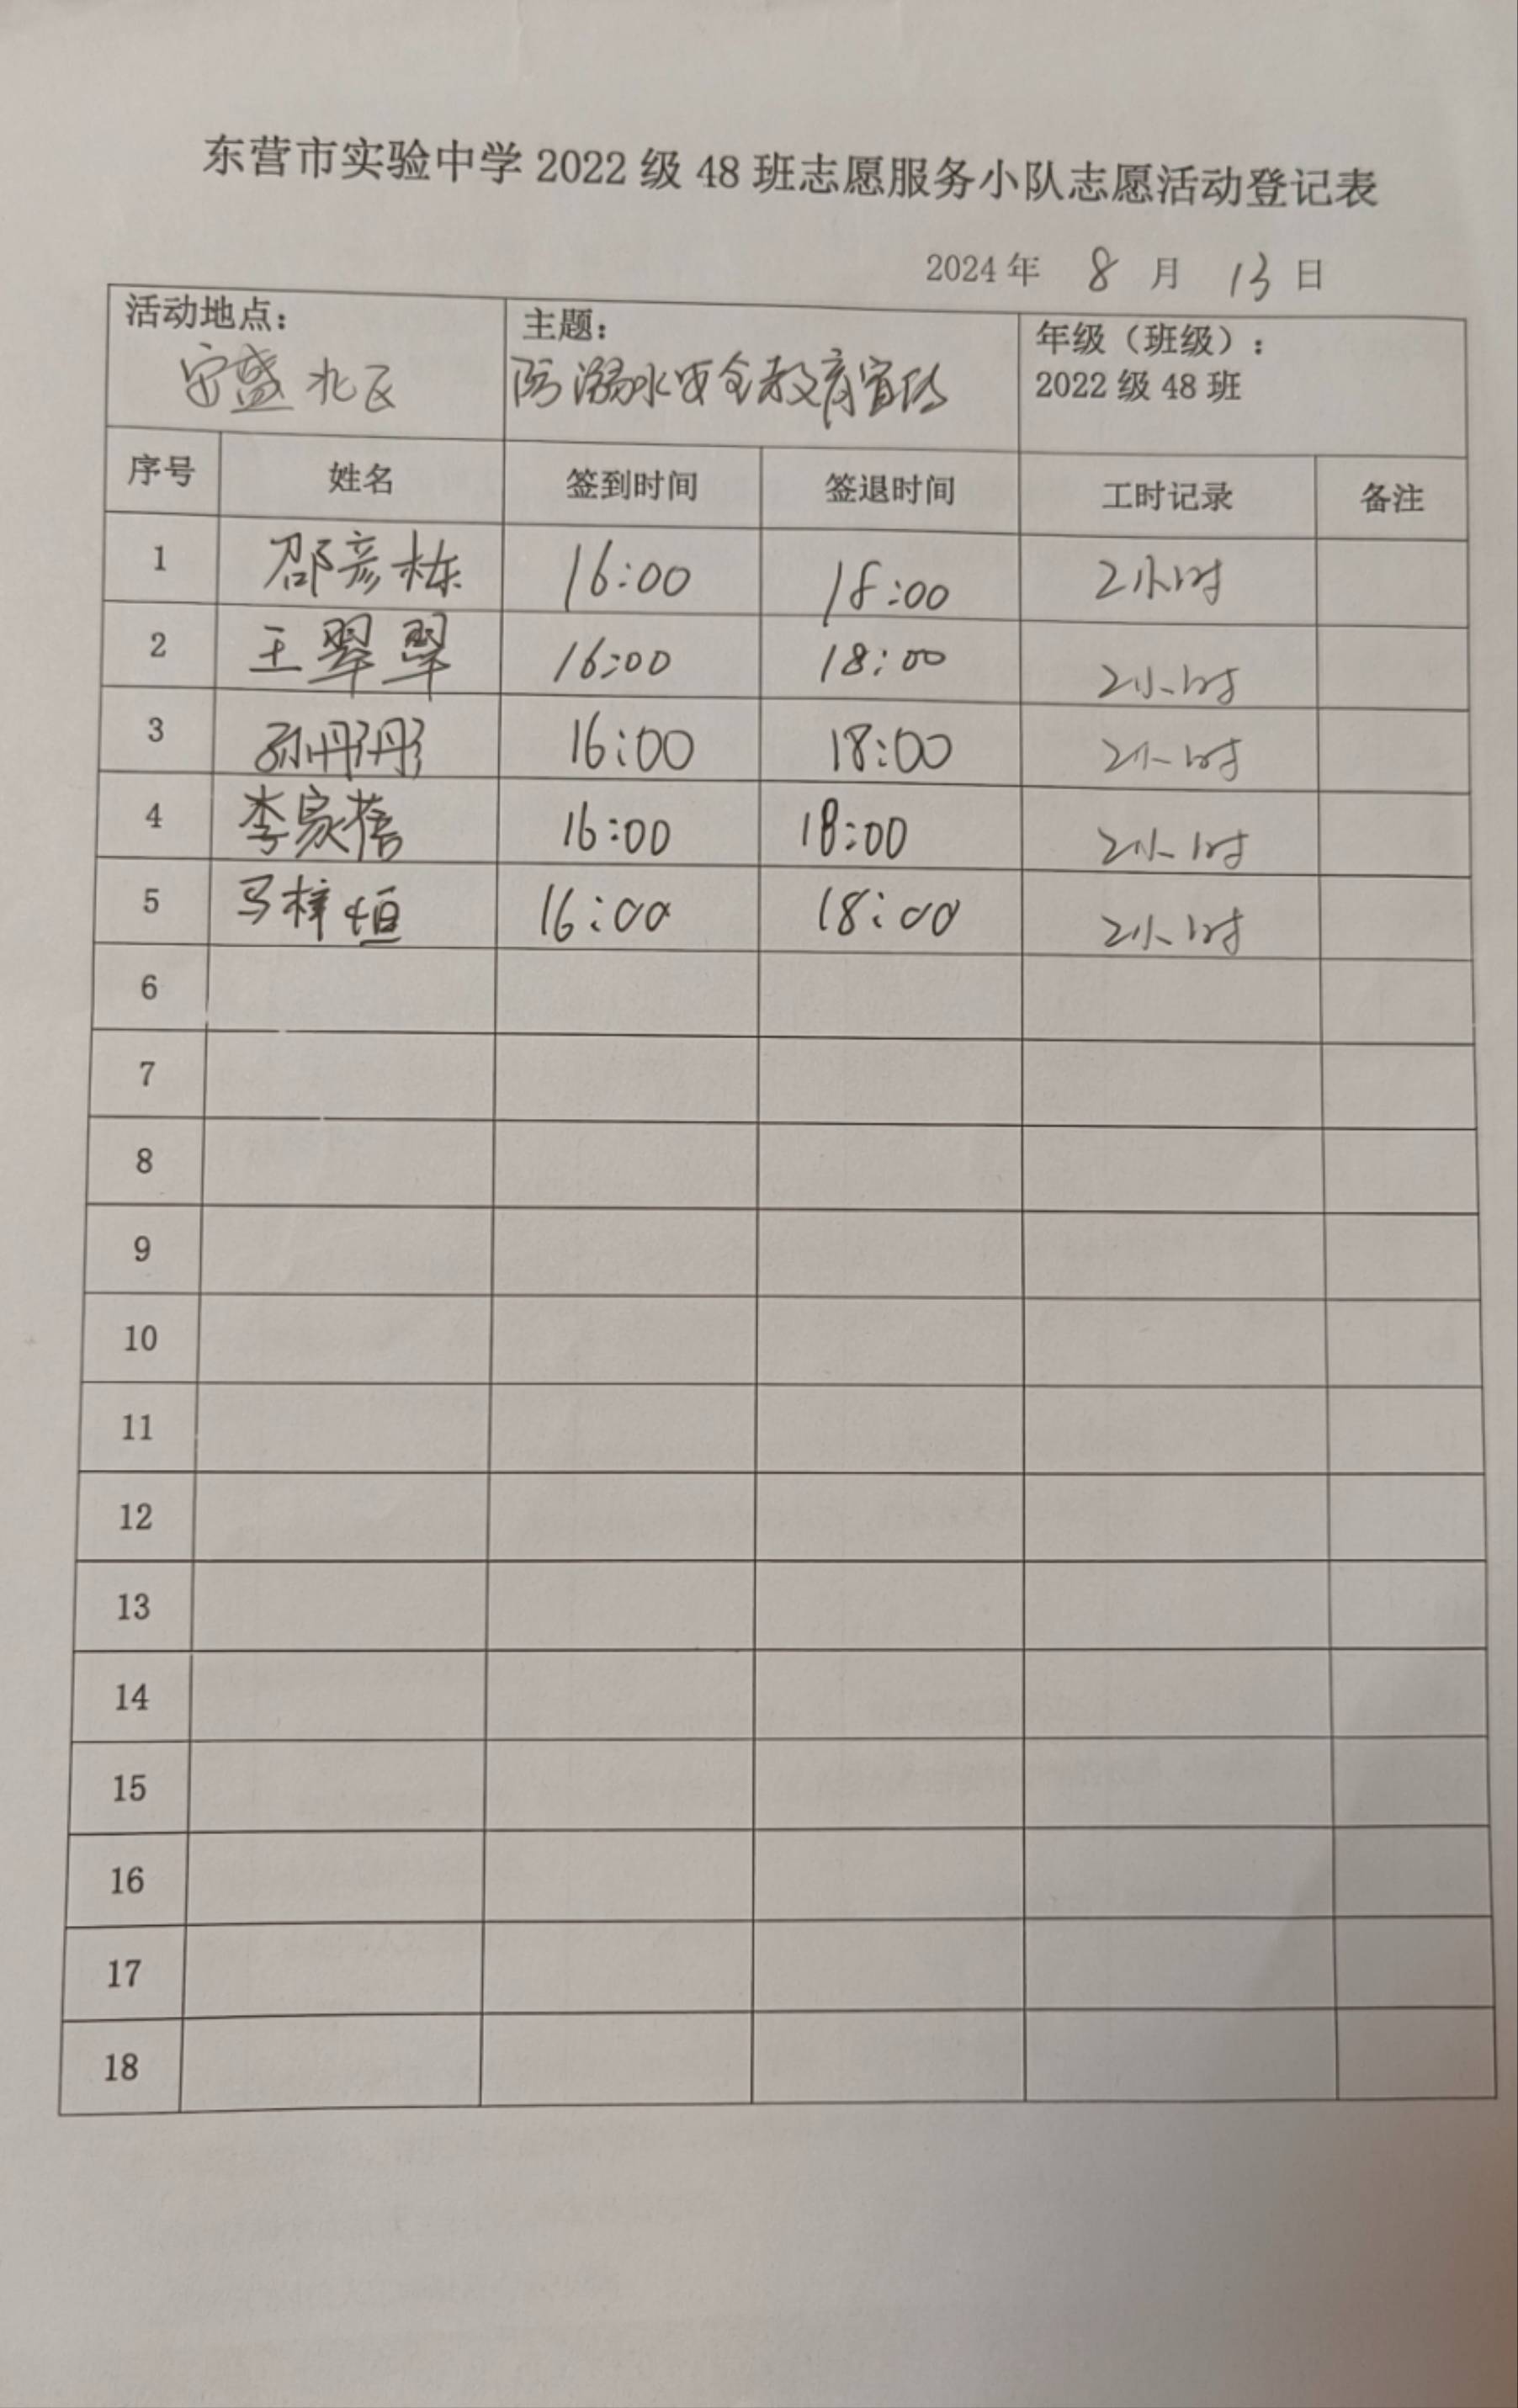 东营市实验中学 2022 级 48 班志愿服务小队志愿活动登记表
2024 年 8 月 13 日
活动地点： 主题： 年级（班级）：
安盛北区 防溺水安全教育宣传 2022 级 48 班
序号 姓名 签到时间 签退时间 工时记录 备注
1 邵彦栋 16:00 18:00 2小时
2 王翠翠 16:00 18:00 2小时
3 孙丹彤 16:00 18:00 2小时
4 李家蓓 16:00 18:00 2小时
5 马梓恒 16:00 18:00 2小时
6
7
8
9
10
11
12
13
14
15
16
17
18